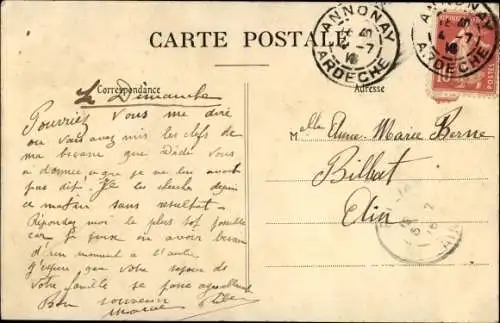 CARTE POSTALE
Correspondance
Adresse
ANNONAY
ARDECHE
ANNONAY
ARDECHE
Le Dimanche
Pourriez vous me dire
ou vous avez mis les clefs de
ma becane que Dédé vous
a données que je ne les avait
pas dit. Je les cherche depuis
ce matin sans resultat.
Répondez moi le plus tot possible
car je puis en avoir besoin
d'un moment à l'autre
J'espère que votre
votre famille se passe
Bon souvenir
Melle Anne-Marie Berne
Billiat
Ain